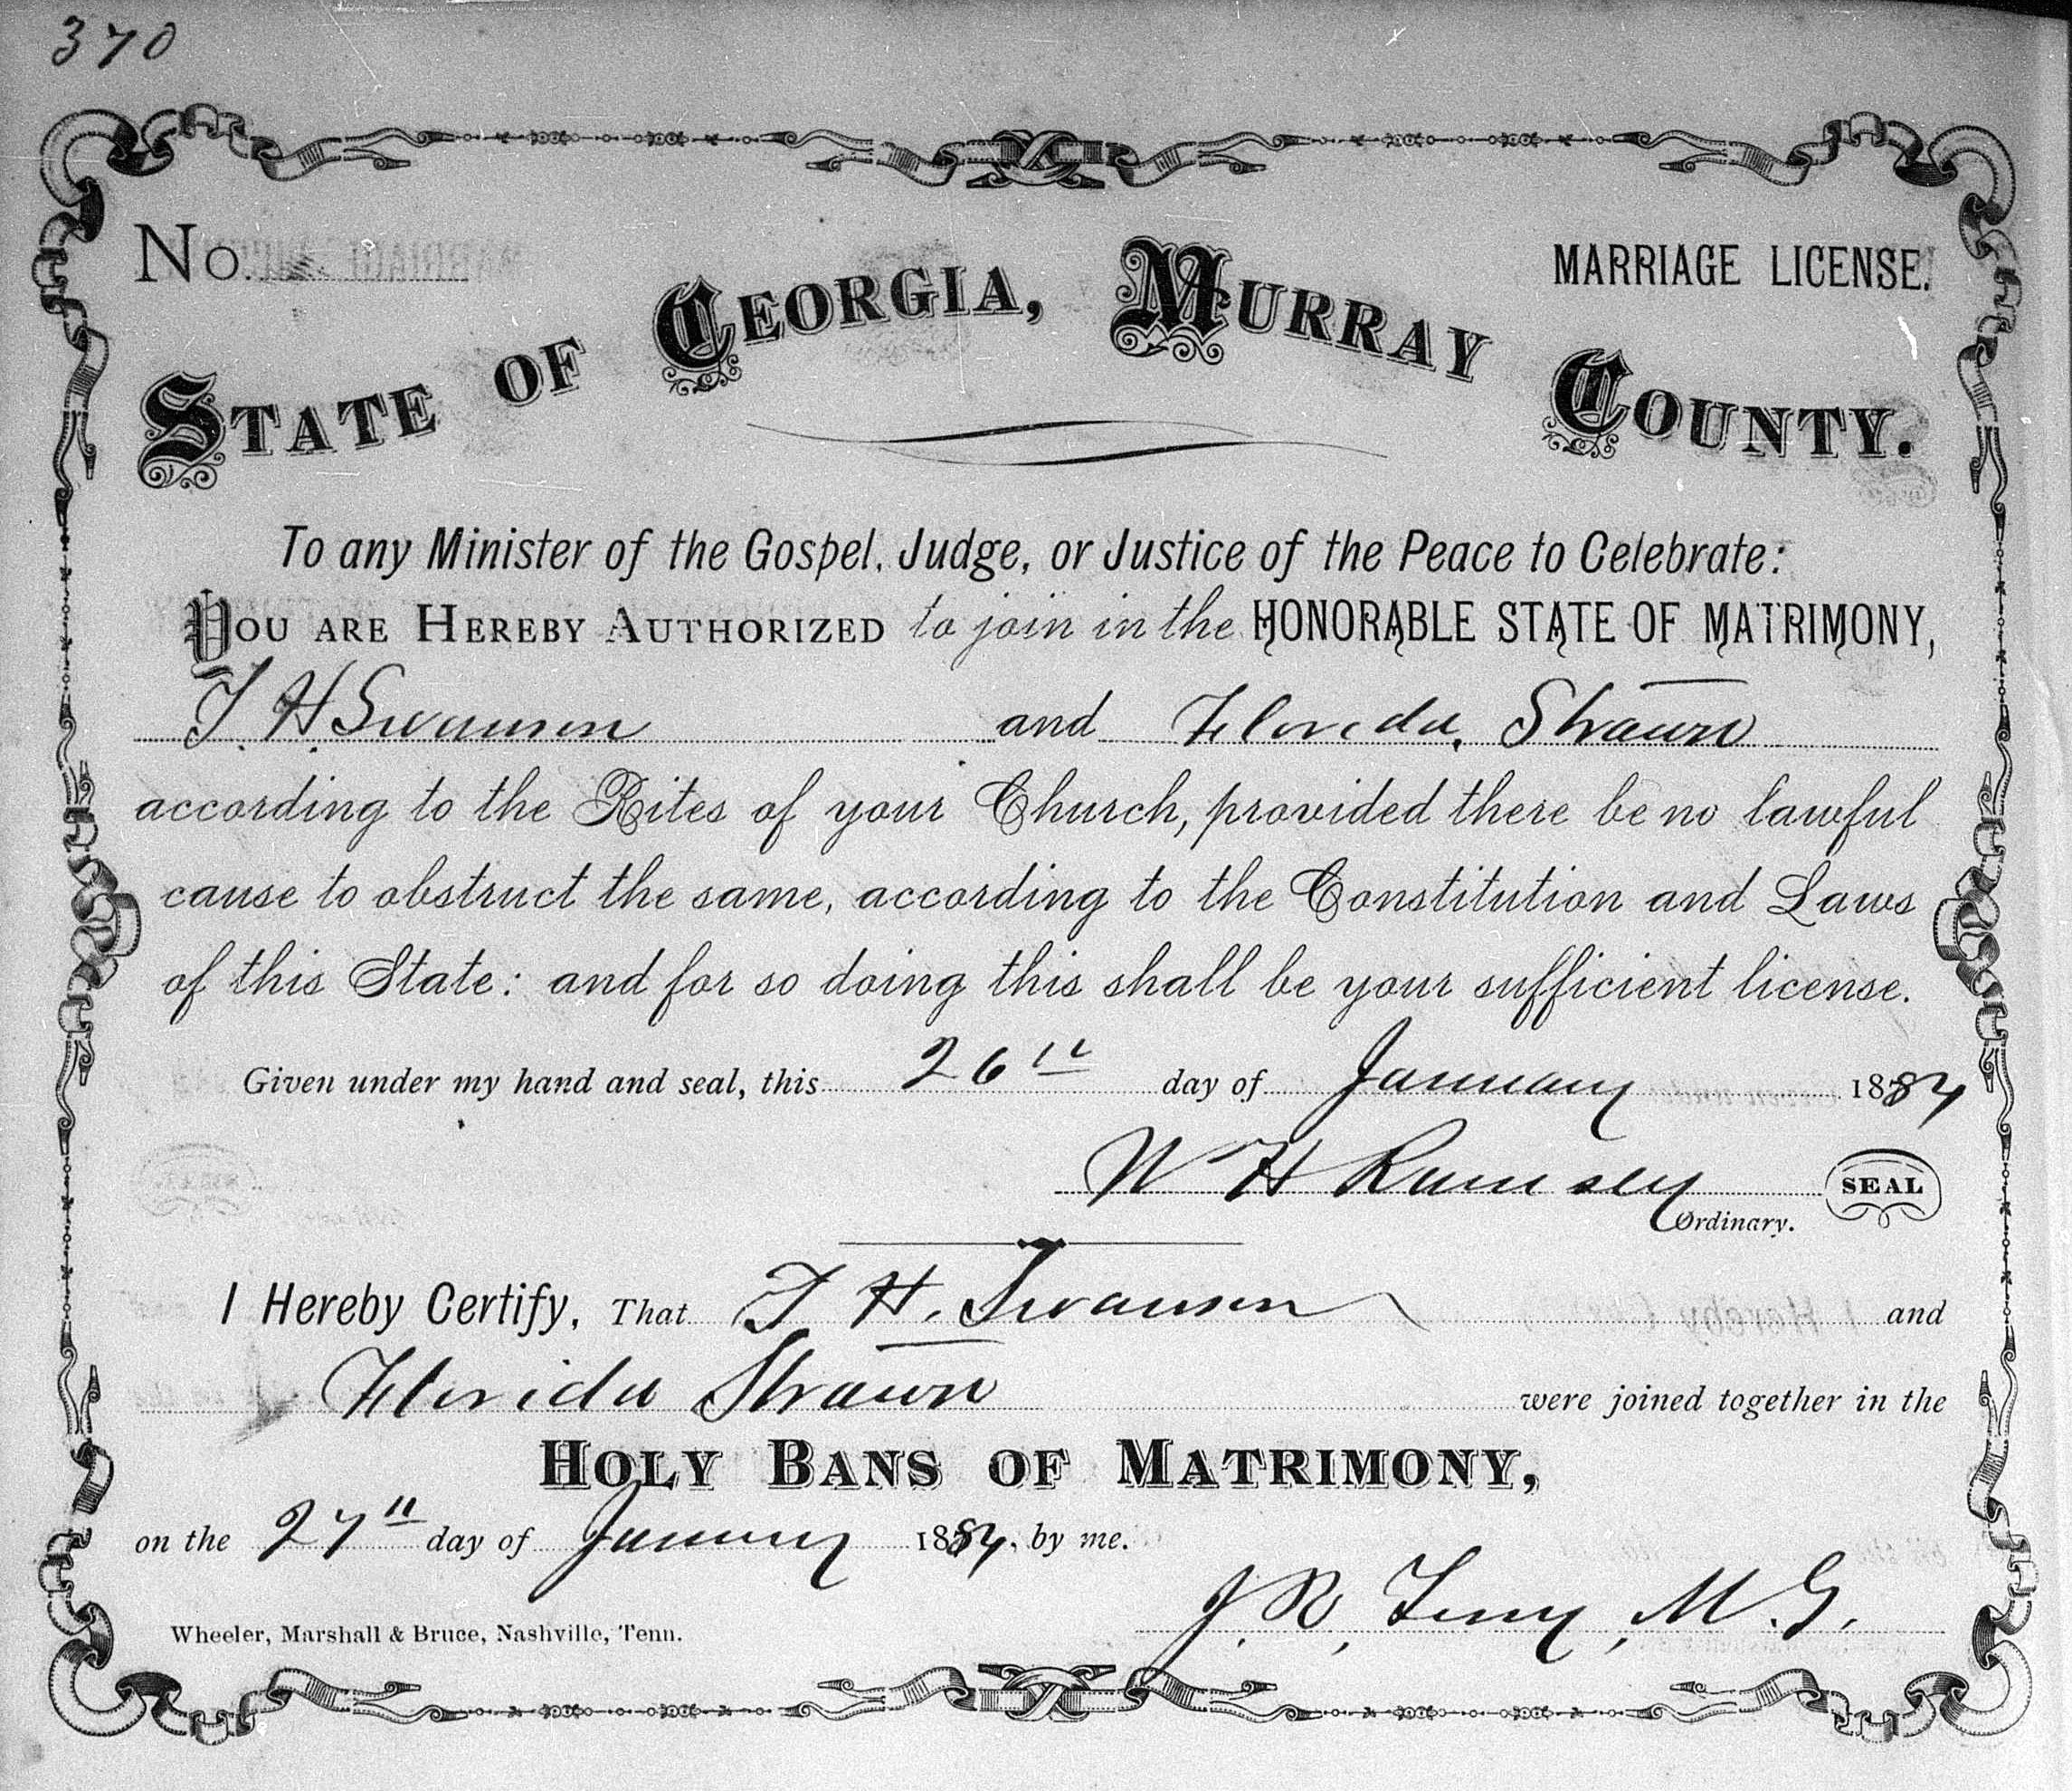 370
No. MARRIAGE LICENSE.
STATE OF GEORGIA, MURRAY COUNTY.
To any Minister of the Gospel, Judge, or Justice of the Peace to Celebrate:
YOU ARE HEREBY AUTHORIZED to join in the HONORABLE STATE OF MATRIMONY,
T. H. Swanson and Florida Strawn
according to the Rites of your Church, provided there be no lawful
cause to obstruct the same, according to the Constitution and Laws
of this State: and for so doing this shall be your sufficient license.
Given under my hand and seal, this 26th day of January 1884
W H Ramsey SEAL
Ordinary.
I Hereby Certify, That T. H. Swanson and
Florida Strawn were joined together in the
HOLY BANS OF MATRIMONY,
on the 27th day of January 1884, by me.
J. R. Terry, M. G.
Wheeler, Marshall & Bruce, Nashville, Tenn.